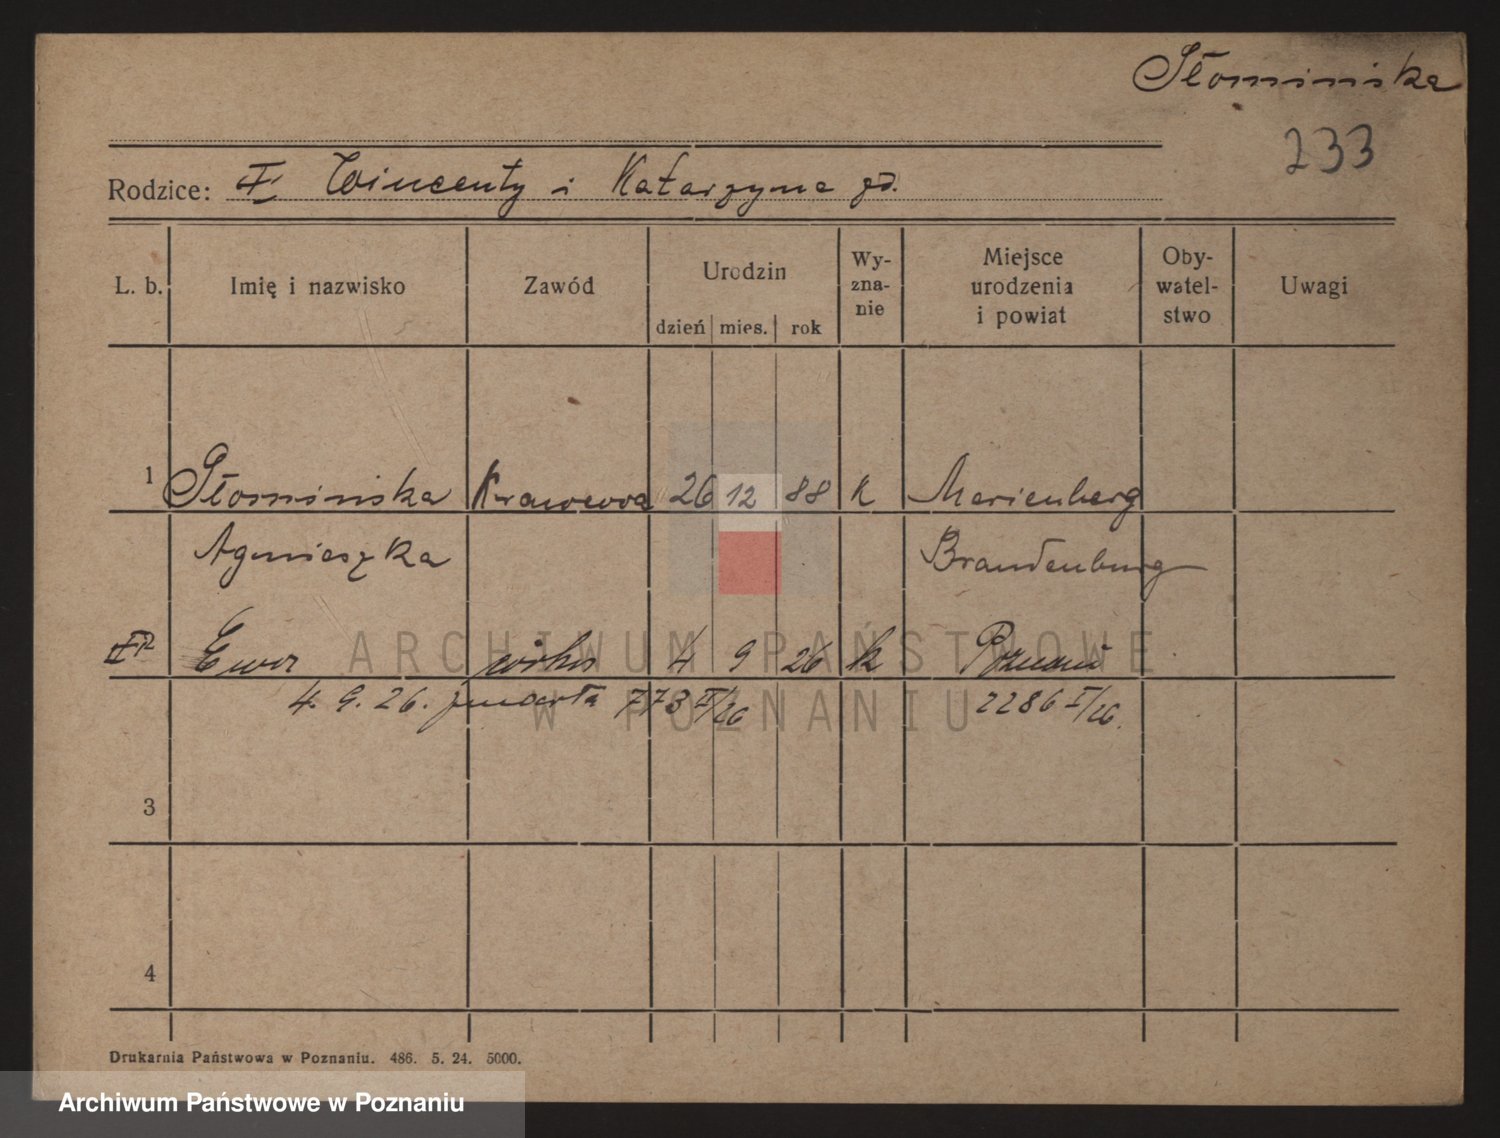 Słomińska
233
Rodzice: I Wincenty i Katarzyna
L. b. Imię i nazwisko Zawód Urodzin Wy-zna-nie Miejsce urodzenia i powiat Oby-watel-stwo Uwagi
dzień mies. rok
1 Słomińska Krawcowa 26 12 88 K Marienberg
Agnieszka Brandenburg
Ewa córka 4 9 26 k Poznań
4. 9. 26. zmarła 773 II/26 2286 I/26.
3
4
Drukarnia Państwowa w Poznaniu. 486. 5. 24. 5000.
ARCHIWUM PAŃSTWOWE
W POZNANIU
Archiwum Państwowe w Poznaniu